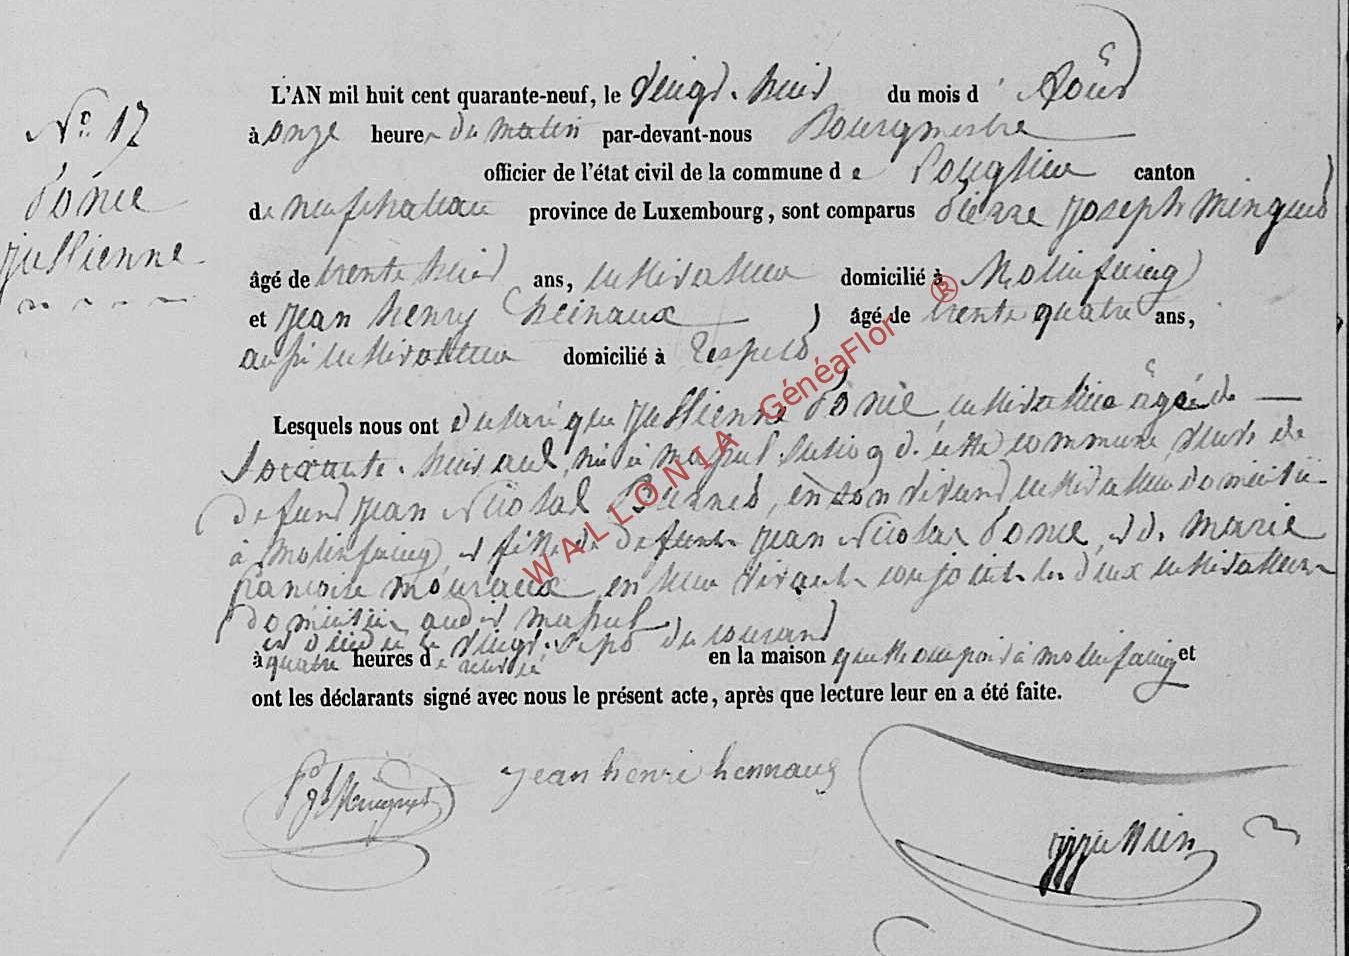 N° 17
Ponce
Jullienne
L'AN mil huit cent quarante-neuf, le vingt-huit du mois d' Août
à onze heures du matin par-devant-nous Bourgmestre
officier de l'état civil de la commune de canton
de neufchateau province de Luxembourg, sont comparus Pierre Joseph Minguet
âgé de trente huit ans, cultivateur domicilié à Molinfaing
et Jean henry heinaux âgé de trente quatre ans,
aussi cultivateur domicilié à Respelt
Lesquels nous ont déclaré que Jullienne Ponce, cultivatrice âgée de
soixante-huit ans, née à section de cette commune, veuve de
defunt Jean Nicolas en son vivant cultivateur domicilié
à Molinfaing, et fille de defunts Jean Nicolas Ponce, et de Marie
francoise en leur vivant conjoints les deux cultivateurs
domiciliés audit
est décédée le vingt-sept du courant
à quatre heures de en la maison qu'elle occupoit à molinfaing et
ont les déclarants signé avec nous le présent acte, après que lecture leur en a été faite.
WALLONIA GénéaFlor ®
jean henri hennaux